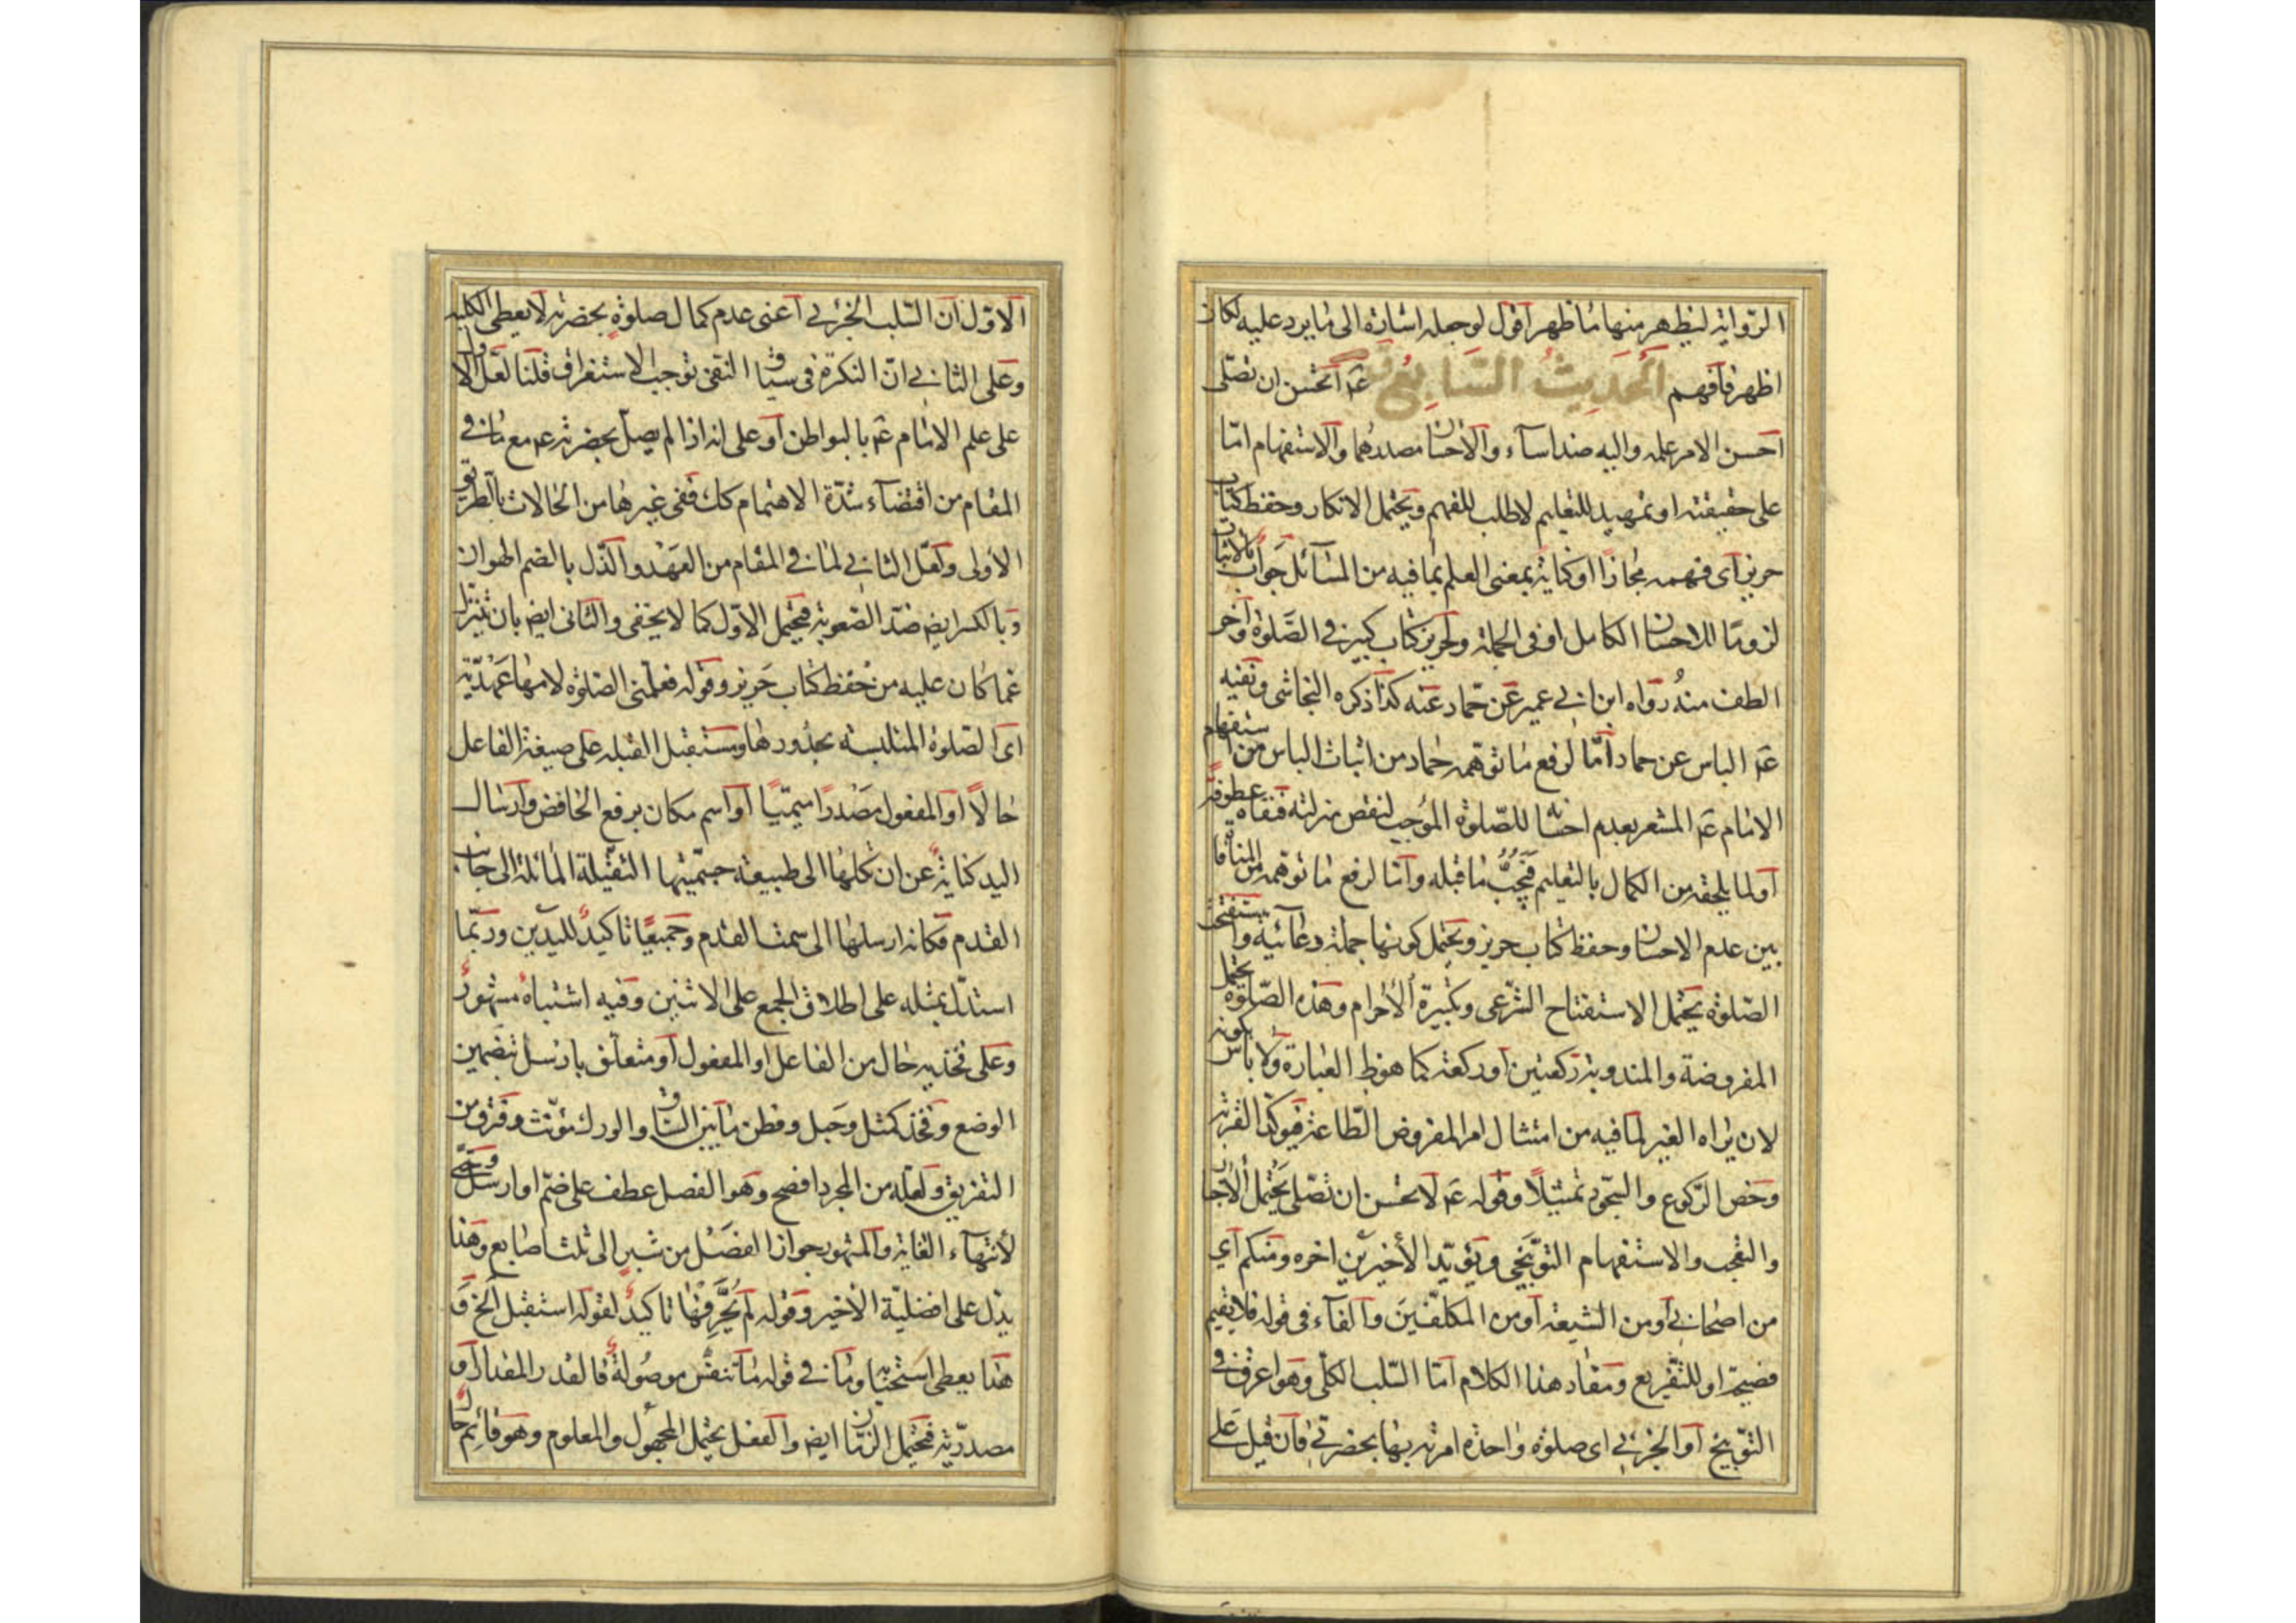 الرواية ليظهر منها ما ظهر اقول لو جعله اشارة الى ما يرد عليه لكان
اظهر فافهم الحديث السابع قوله عم اتحسن ان تصلى
احسن الامر علمه واليه ضد اساء والاحسان مصدرهما والاستفهام امّا
على حقيقته او تمهيد للتعليم لا طلب للفهم ويحتمل الانكار وحفظ كتاب
حريز اى فهمه مجازًا او كناية بمعنى العلم بما فيه من المسائل جواب بالاثبات
لزومًا للاحسان الكامل او فى الجملة ولحريز كتاب كبير فى الصّلوة وآخر
الطف منه رواه ابن ابي عمير عن حمّاد عنه كذا ذكره النجاشى ونفيه
عم الباس عن حماد امّا لرفع ما توهمه حماد من اثبات الباس من استفهام
الامام عم المشعر بعدم احسانه للصّلوة الموجب لنقص منزلته فنفاه عطوفةً
اولما يلحقه من الكمال بالتعليم فيجبّ ما قبله وامّا لرفع ما توهمه من المنافاة
بين عدم الاحسان وحفظ كتاب حريز ويحتمل كونها جملة دعائية واستفتح
الصّلوة يحتمل الاستفتاح الشّرعى وتكبيرة الاحرام وهذه الصّلوة يحتمل
المفروضة والمندوبة ركعتين او ركعة كما هو ظ العبارة ولا باس بكونه
لان يراه الغير لما فيه من امتثال امر المفروض الطّاعة فيوكّد القربة
وخص الرّكوع والسّجود تمثيلًا وقوله عم لا تحسن ان تصلّى يحتمل الاخبار
والتعجب والاستفهام التوبيخى ويؤيّد الأخيرين اخره ومنكم اي
من اصحابي او من الشيعة او من المكلفين والفاء فى قوله فلا يقيم
فصيحة او للتفريع ومفاد هذا الكلام امّا السّلب الكلّى وهو اعرق فى
التّوبيخ او الجزئي اى صلوة واحدة امرته بها بحضرتي فان قيل على
الاوّل ان السّلب الجزئي اعنى عدم كمال صلوةٍ بحضرته لا يعطى الكلية
وعلى الثاني انّ النكرة فى سياق النفى توجب الاستغراق قلنا لعلّ الاول
على علم الامام عم بالبواطن او على انه اذا لم يصلّ بحضرته عم مع ما فى
المقام من اقتضاء شدّة الاهتمام كك ففى غيرها من الحالات بالطريق
الأولى ولعل الثاني لما فى المقام من العهد والذّل بالضم الهوان
وبالكسر ايض ضدّ الصّعوبة فيحتمل الاوّل كما لا يخفى والثانى ايض بان تنزل
عمّا كان عليه من حفظ كتاب حريز وقوله فعلّمنى الصّلوة لامها عهديّة
اى الصّلوة المتلبسة بحدودها ومستقبل القبلة على صيغة الفاعل
حالًا او المفعول مصدرًا ميميًّا او اسم مكان برفع الخافض وارسال
اليد كناية عن ان تكلها الى طبيعة جسميّتها الثقيلة المائلة الى جانب
القدم فكانه ارسلها الى سمت القدم وجميعًا تاكيدٌ لليدين وربّما
استدلّ بمثله على اطلاق الجمع على الاثنين وفيه اشتباه مشهورٌ
وعلى فخذيه حال من الفاعل او المفعول او متعلّق بارسل بتضمين
الوضع وفخذ كمثل وحبل وفطن ما بين الساق والورك مؤنّث وفرق من
التفريق ولعلّه من المجرد افصح وهو الفصل عطف على ضمّ او ارسل وحتّى
لأنتهاء الغاية والمشهور جواز الفصل من شبرٍ الى ثلث اصابع وهذا
يدل على افضليّة الأخير وقوله لم يحرّفهما تاكيدٌ لقوله استقبل الخ و
هذا يعطى استحبابه وما فى قوله ما تنفّس موصولةٌ فالقدر المقدار او
مصدريّة فيحتمل الزمان ايض والفعل يحتمل المجهول والمعلوم وهو قائم حالٌ